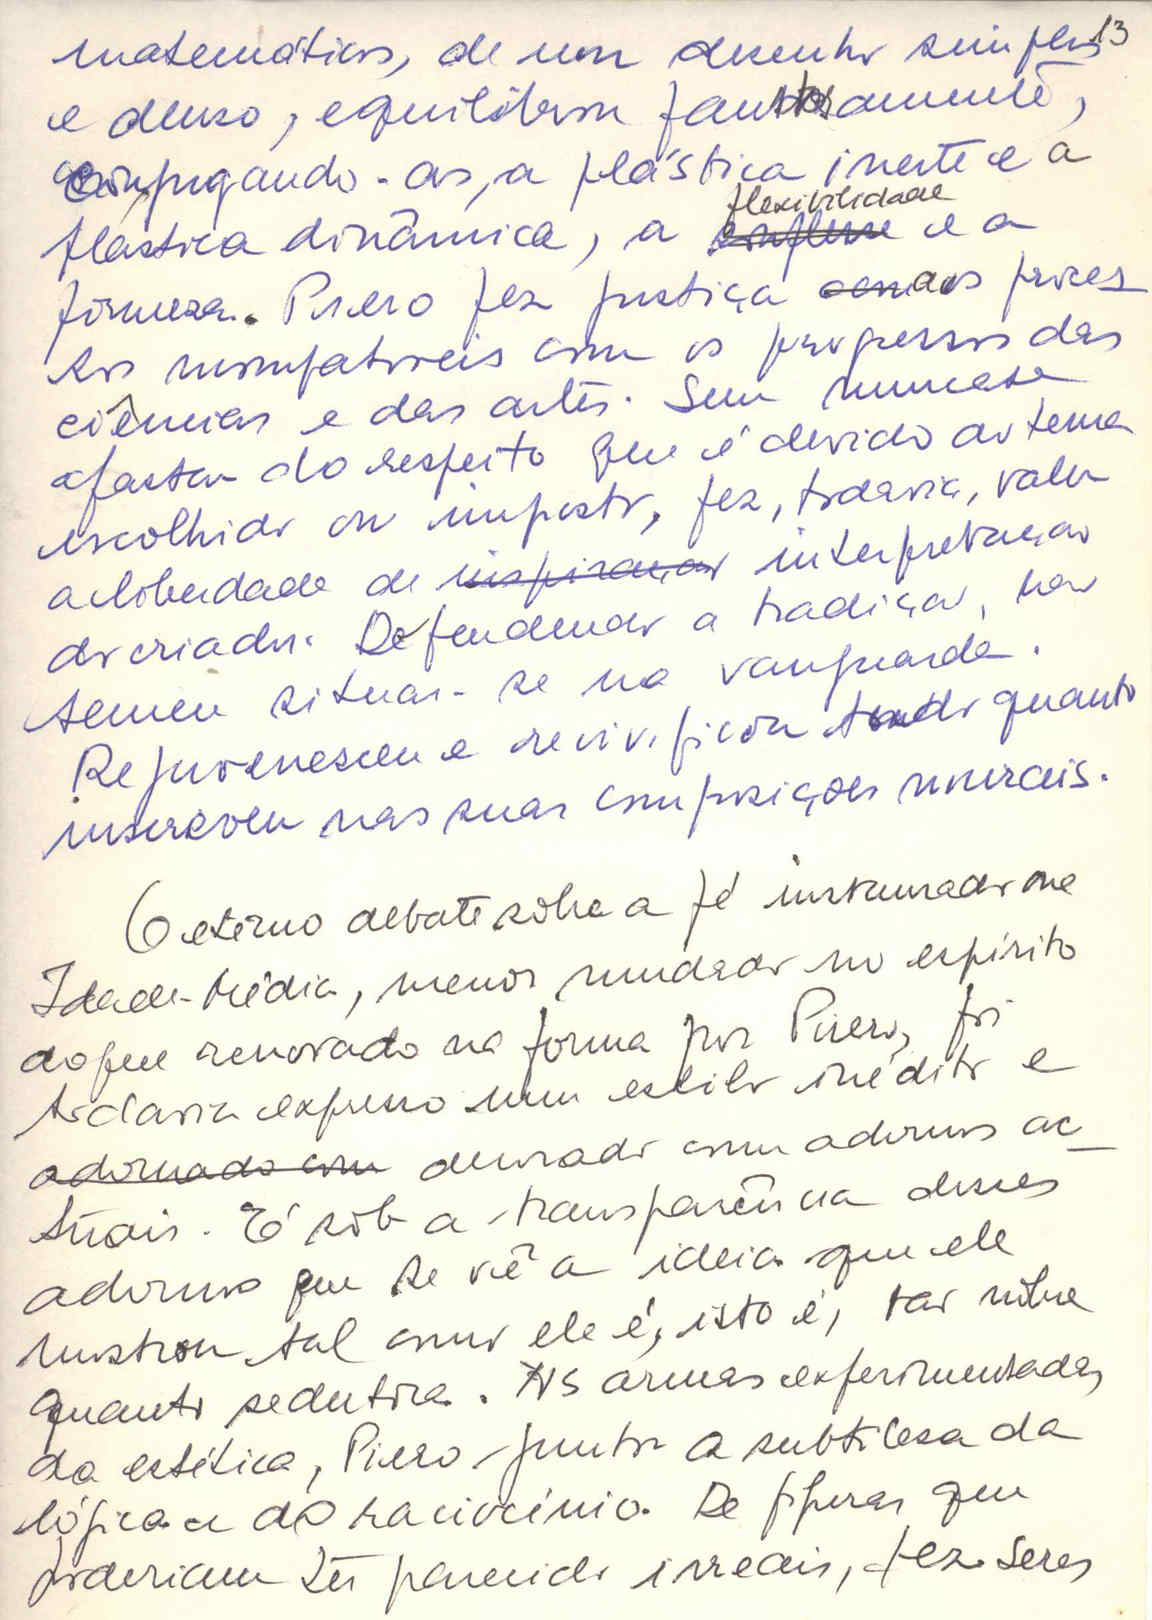 13
matemáticos, de um desenho simples
e denso, equilibrou faustosamente,
conjugando-as, a plástica inerte e a
plástica dinâmica, a flexibilidade e a
firmeza. Piero fez justiça aos
incompatíveis com os progressos das
ciências e das artes. Sem nunca se
afastar do respeito que é devido ao tema
escolhido ou imposto, fez, todavia, valer
a liberdade de inspiração interpretação
do criador. Defendendo a tradição, não
temeu situar-se na vanguarda.
Rejuvenesceu e revivificou tudo quanto
inscreveu nas suas composições murais.
O eterno debate sobre a fé instaurado na
Idade-Média, menos mudado no espírito
do que renovado na forma por Piero, foi
todavia expresso num estilo inédito e
adornado com decorado com adornos ac-
tuais. É sob a transparência desses
adornos que se vê a ideia que ele
mostrou tal como ele é, isto é, tão nobre
quanto sedutora. Às armas experimentadas
da estética, Piero juntou a subtileza da
lógica e do raciocínio. De figuras que
poderiam ter parecido irreais, fez seres